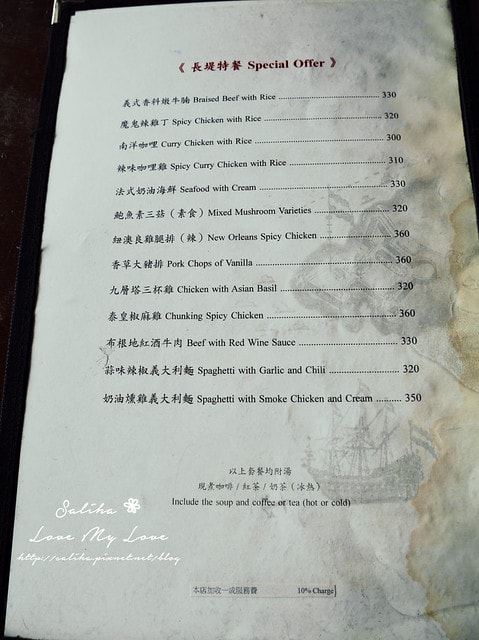 《 長堤特餐 Special Offer 》
義式香料燉牛腩 Braised Beef with Rice ........................................ 330
魔鬼辣雞丁 Spicy Chicken with Rice ........................................ 320
南洋咖哩 Curry Chicken with Rice ........................................ 300
辣味咖哩雞 Spicy Curry Chicken with Rice ................................ 310
法式奶油海鮮 Seafood with Cream ........................................ 330
鮑魚素三菇（素食）Mixed Mushroom Varieties ........................ 320
紐澳良雞腿排（辣）New Orleans Spicy Chicken ........................ 360
香草大豬排 Pork Chops of Vanilla ........................................ 360
九層塔三杯雞 Chicken with Asian Basil ................................ 320
泰皇椒麻雞 Chunking Spicy Chicken ................................ 360
布根地紅酒牛肉 Beef with Red Wine Sauce ................................ 330
蒜味辣椒義大利麵 Spaghetti with Garlic and Chili ........................ 320
奶油燻雞義大利麵 Spaghetti with Smoke Chicken and Cream .......... 350
以上套餐均附湯
現煮咖啡 / 紅茶 / 奶茶（冰熱）
Include the soup and coffee or tea (hot or cold)
Saliha
Love My Love
http://saliha.pixnet.net/blog
本店加收一成服務費 10% Charge